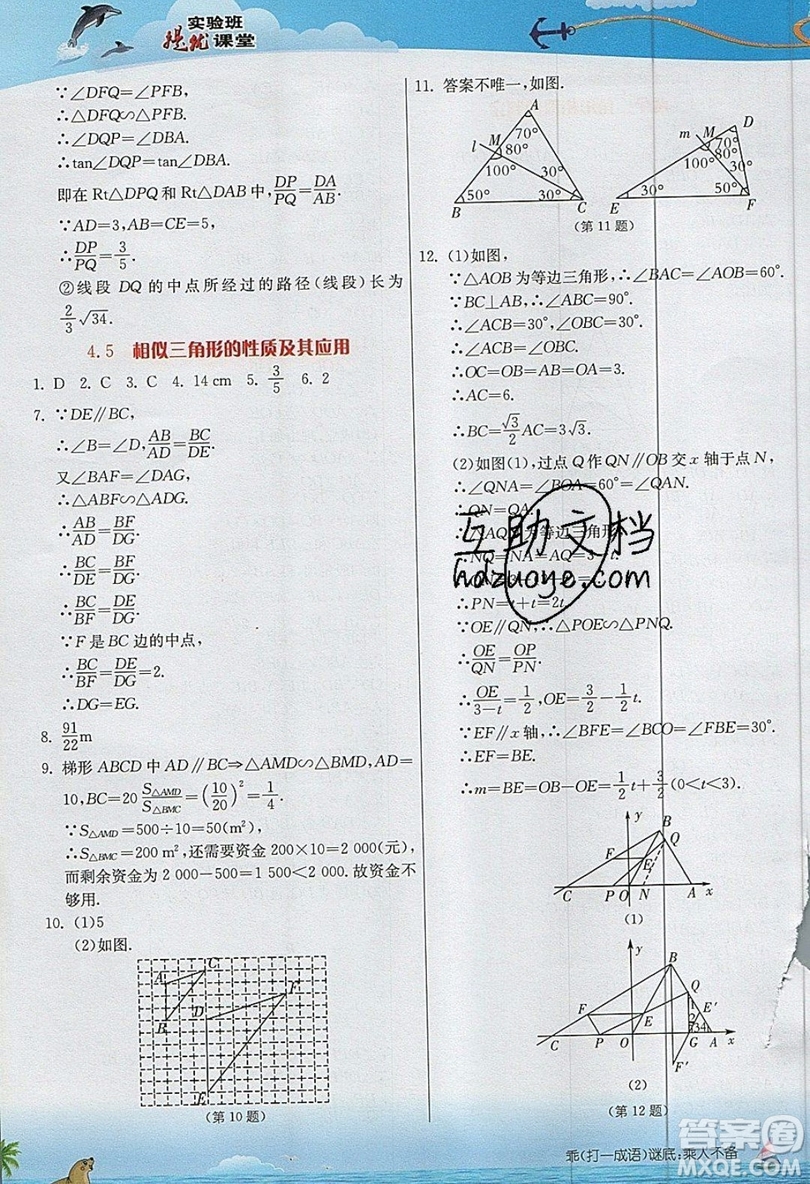 实验班
提优课堂
∵∠DFQ=∠PFB,
∴△DFQ∽△PFB.
∴∠DQP=∠DBA.
∴tan∠DQP=tan∠DBA.
即在 Rt△DPQ 和 Rt△DAB 中,DP/PQ=DA/AB.
∵AD=3,AB=CE=5,
∴DP/PQ=3/5.
②线段 DQ 的中点所经过的路径(线段)长为
2/3√34.
4.5 相似三角形的性质及其应用
1. D 2. C 3. C 4. 14 cm 5. 3/5 6. 2
7. ∵DE∥BC,
∴∠B=∠D,AB/AD=BC/DE.
又∠BAF=∠DAG,
∴△ABF∽△ADG.
∴AB/AD=BF/DG.
∴BC/DE=BF/DG.
∴BC/BF=DE/DG.
∵F 是 BC 边的中点,
∴BC/BF=DE/DG=2.
∴DG=EG.
8. 91/22 m
9. 梯形 ABCD 中 AD∥BC⇒△AMD∽△BMD,AD=
10,BC=20 S△AMD/S△BMC=(10/20)²=1/4.
∵S△AMD=500÷10=50(m²),
∴S△BMC=200 m²,还需要资金 200×10=2 000(元),
而剩余资金为 2 000-500=1 500<2 000. 故资金不
够用.
10. (1)5
(2)如图.
A
B
C
D
E
F
(第 10 题)
11. 答案不唯一,如图.
A
70°
l
M
80°
100°
50°
30°
B
C
D
m
M
70°
80°
100°
30°
30°
E
F
(第 11 题)
12. (1)如图,
∵△AOB 为等边三角形,∴∠BAC=∠AOB=60°.
∵BC⊥AB,∴∠ABC=90°.
∴∠ACB=30°,∠OBC=30°.
∴∠ACB=∠OBC.
∴OC=OB=AB=OA=3.
∴AC=6.
∴BC=√3/2 AC=3√3.
(2)如图(1),过点 Q 作 QN∥OB 交 x 轴于点 N,
∴∠QNA=∠BOA=60°=∠QAN.
∴QN=QA.
∴△NAQ 为等边三角形.
∴NQ=NA=AQ=3-t.
∴PN=t+t=2t.
∵OE∥QN,∴△POE∽△PNQ.
∴OE/QN=OP/PN.
∴OE/3-t=1/2,OE=3/2-1/2t.
∵EF∥x 轴,∴∠BFE=∠BCO=∠FBE=30°.
∴EF=BE.
∴m=BE=OB-OE=1/2t+3/2(0<t<3).
y
B
Q
F
E
C
P
O
N
A
x
(1)
y
B
Q
F
E
E′
1
2
7
3
4
C
P
O
G
A
x
F′
(2)
(第 12 题)
互助文档
hdzuoye.com
乖(打一成语)谜底:乘人不备
答案圈
MXQE.COM